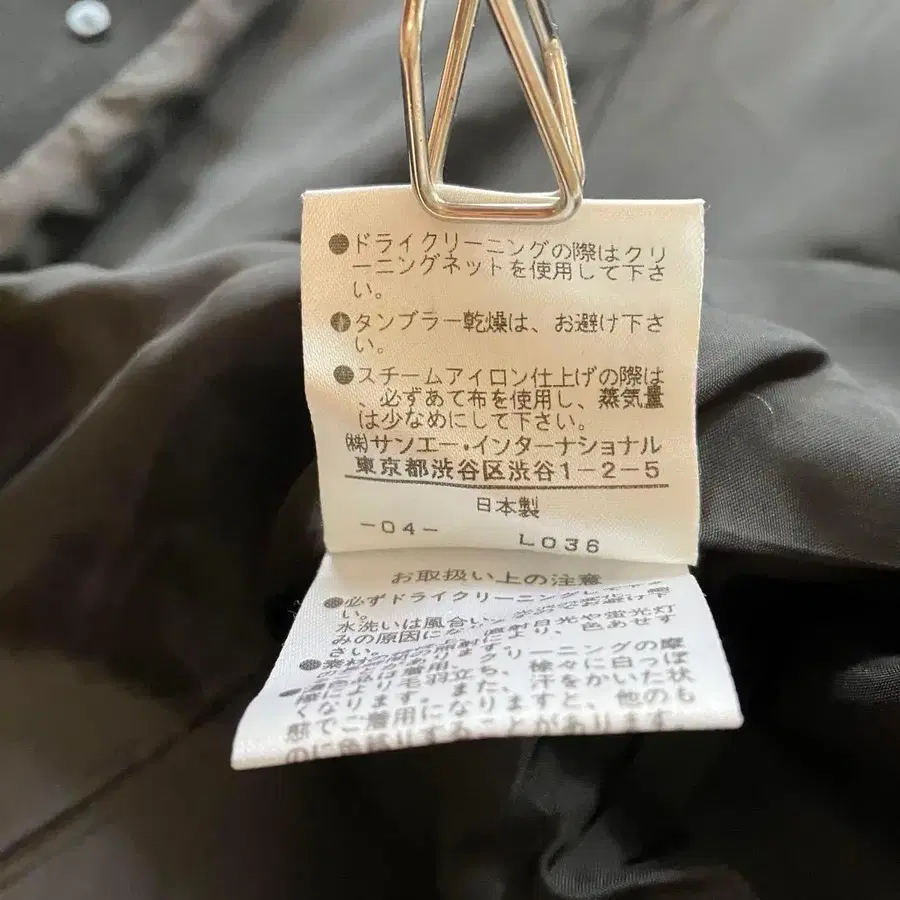 ●ドライクリーニングの際はクリ
ーニングネットを使用して下さ
い。
●タンブラー乾燥は、お避け下さ
い。
●スチームアイロン仕上げの際は
、必ずあて布を使用し、蒸気量
は少なめにして下さい。
㈱サンエー・インターナショナル
東京都渋谷区渋谷1-2-5
日本製
-04- L036
お取扱い上の注意
●必ずドライクリーニングして下さ
い。
水洗いは風合い
みの原因にな 直射日光や蛍光灯
さい。 照射により、色あせす
クリーニングの摩
擦により毛羽立ち、徐々に白っぽ
くなります。また、汗をかいた状
態でご着用になりますと、他のも
のに色移りすることがあります。